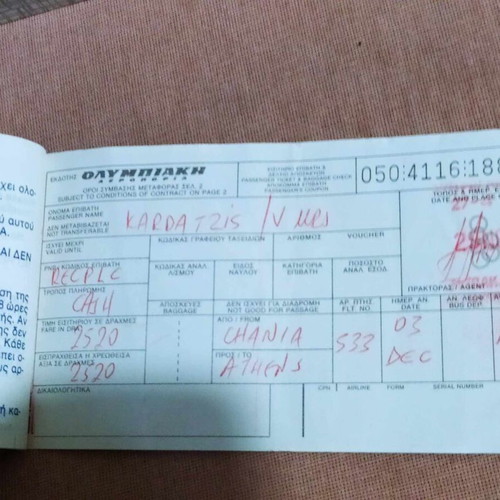 χει ολο-
ύ αυτού
Α.
ΑΙ ΔΕΝ
ση της
3 ώρες
ής. Αν
ης δεν
Κάθε
πει ο-
υς αρ-
ή κα-
ΕΚΔΟΤΗΣ ΟΛΥΜΠΙΑΚΗ
ΑΕΡΟΠΟΡΙΑ
ΟΡΟΙ ΣΥΜΒΑΣΗΣ ΜΕΤΑΦΟΡΑΣ ΣΕΛ. 2
SUBJECT TO CONDITIONS OF CONTRACT ON PAGE 2
ΕΙΣΙΤΗΡΙΟ ΕΠΙΒΑΤΗ &
ΔΕΛΤΙΟ ΑΠΟΣΚΕΥΩΝ
PASSENGER TICKET & BAGGAGE CHECK
ΑΠΟΚΟΜΜΑ ΕΠΙΒΑΤΟΥ
PASSENGER COUPON
050:4116:188
ΟΝΟΜΑ ΕΠΙΒΑΤΗ
PASSENGER NAME
ΔΕΝ ΜΕΤΑΒΙΒΑΖΕΤΑΙ
NOT TRANSFERABLE
KARDATZIS /V MRS
DATE AND PLACE
ΙΣΧΥΕΙ ΜΕΧΡΙ
VALID UNTIL
ΚΩΔΙΚΑΣ ΓΡΑΦΕΙΟΥ ΤΑΞΕΙΔΙΩΝ
ΑΡΙΘΜΟΣ
VOUCHER
ΚΩΔΙΚΟΣ ΕΠΙΒΑΤΗ
ΚΩΔΙΚΑΣ ΑΝΑΛ.
ΛΙΣΜΟΥ
ΕΙΔΟΣ
ΝΑΥΛΟΥ
ΚΑΤΗΓΟΡΙΑ
ΕΠΙΒΑΤΗ
ΠΟΣΟΣΤΟ
ΑΝΑΛ. ΕΞΟΔ.
ΠΡΑΚΤΟΡΑΣ / AGENT
ΤΡΟΠΟΣ ΠΛΗΡΩΜΗΣ
CASH
ΑΠΟΣΚΕΥΕΣ
BAGGAGE
ΔΕΝ ΙΣΧΥΕΙ ΓΙΑ ΔΙΑΔΡΟΜΗ
NOT GOOD FOR PASSAGE
ΑΡ. ΠΤΗΣ
FLT. NO
ΗΜΕΡ. ΑΝ
DATE DEP.
BUS DEP.
ΤΙΜΗ ΕΙΣΙΤΗΡΙΟΥ ΣΕ ΔΡΑΧΜΕΣ
FARE IN DRA
2520
ΑΠΟ / FROM
CHANIA
533
03
DEC
ΑΞΙΑ ΣΕ ΔΡΑΧΜΕΣ
2520
ΠΡΟΣ / TO
ATHENS
ΔΙΚΑΙΟΛΟΓΗΤΙΚΑ
CPN AIRLINE FORM SERIAL NUMBER